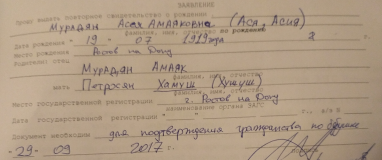 ЗАЯВЛЕНИЕ
Прошу выдать повторное свидетельство о рождении
Мурадян Асая Амаяковна (Ася, Асия)
фамилия, имя, отчество по рождению
Дата рождения "19" 07 1919 года
Место рождения Ростов на Дону
Родители: отец
Мурадян Амаяк
фамилия, имя, отчество
мать Петросян Хамуш (Хумуш)
фамилия, имя, отчество
Место государственной регистрации г. Ростов на Дону
наименование органа ЗАГС
Дата государственной регистрации г., а/з №
Документ необходим для подтверждения гражданства по
"29" 09 2017 г.